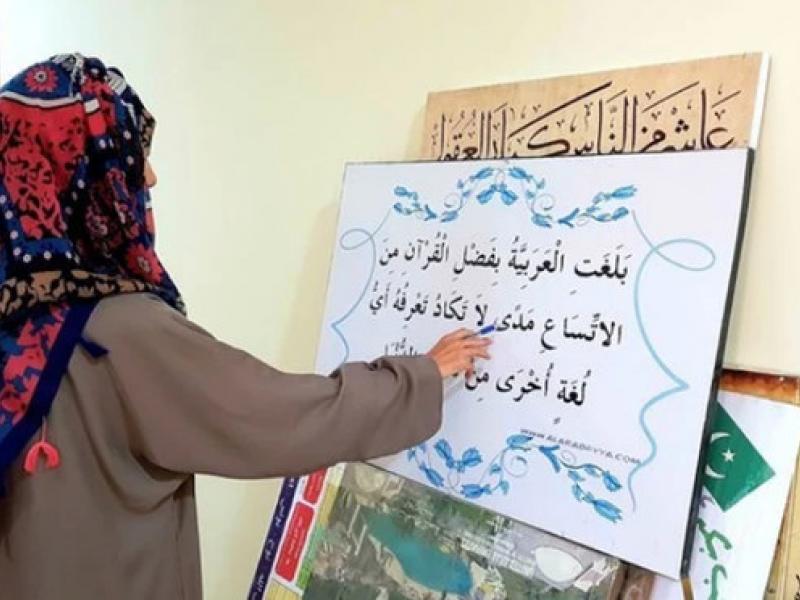 عاش من الناس كبار العقول
بَلَغَتِ الْعَرَبِيَّةُ بِفَضْلِ الْقُرْآنِ مِنَ
الاتِّسَاعِ مَدًى لَا تَكَادُ تَعْرِفُهُ أَيُّ
لُغَةٍ أُخْرَى مِنْ
WWW.ALARABIYYA.COM